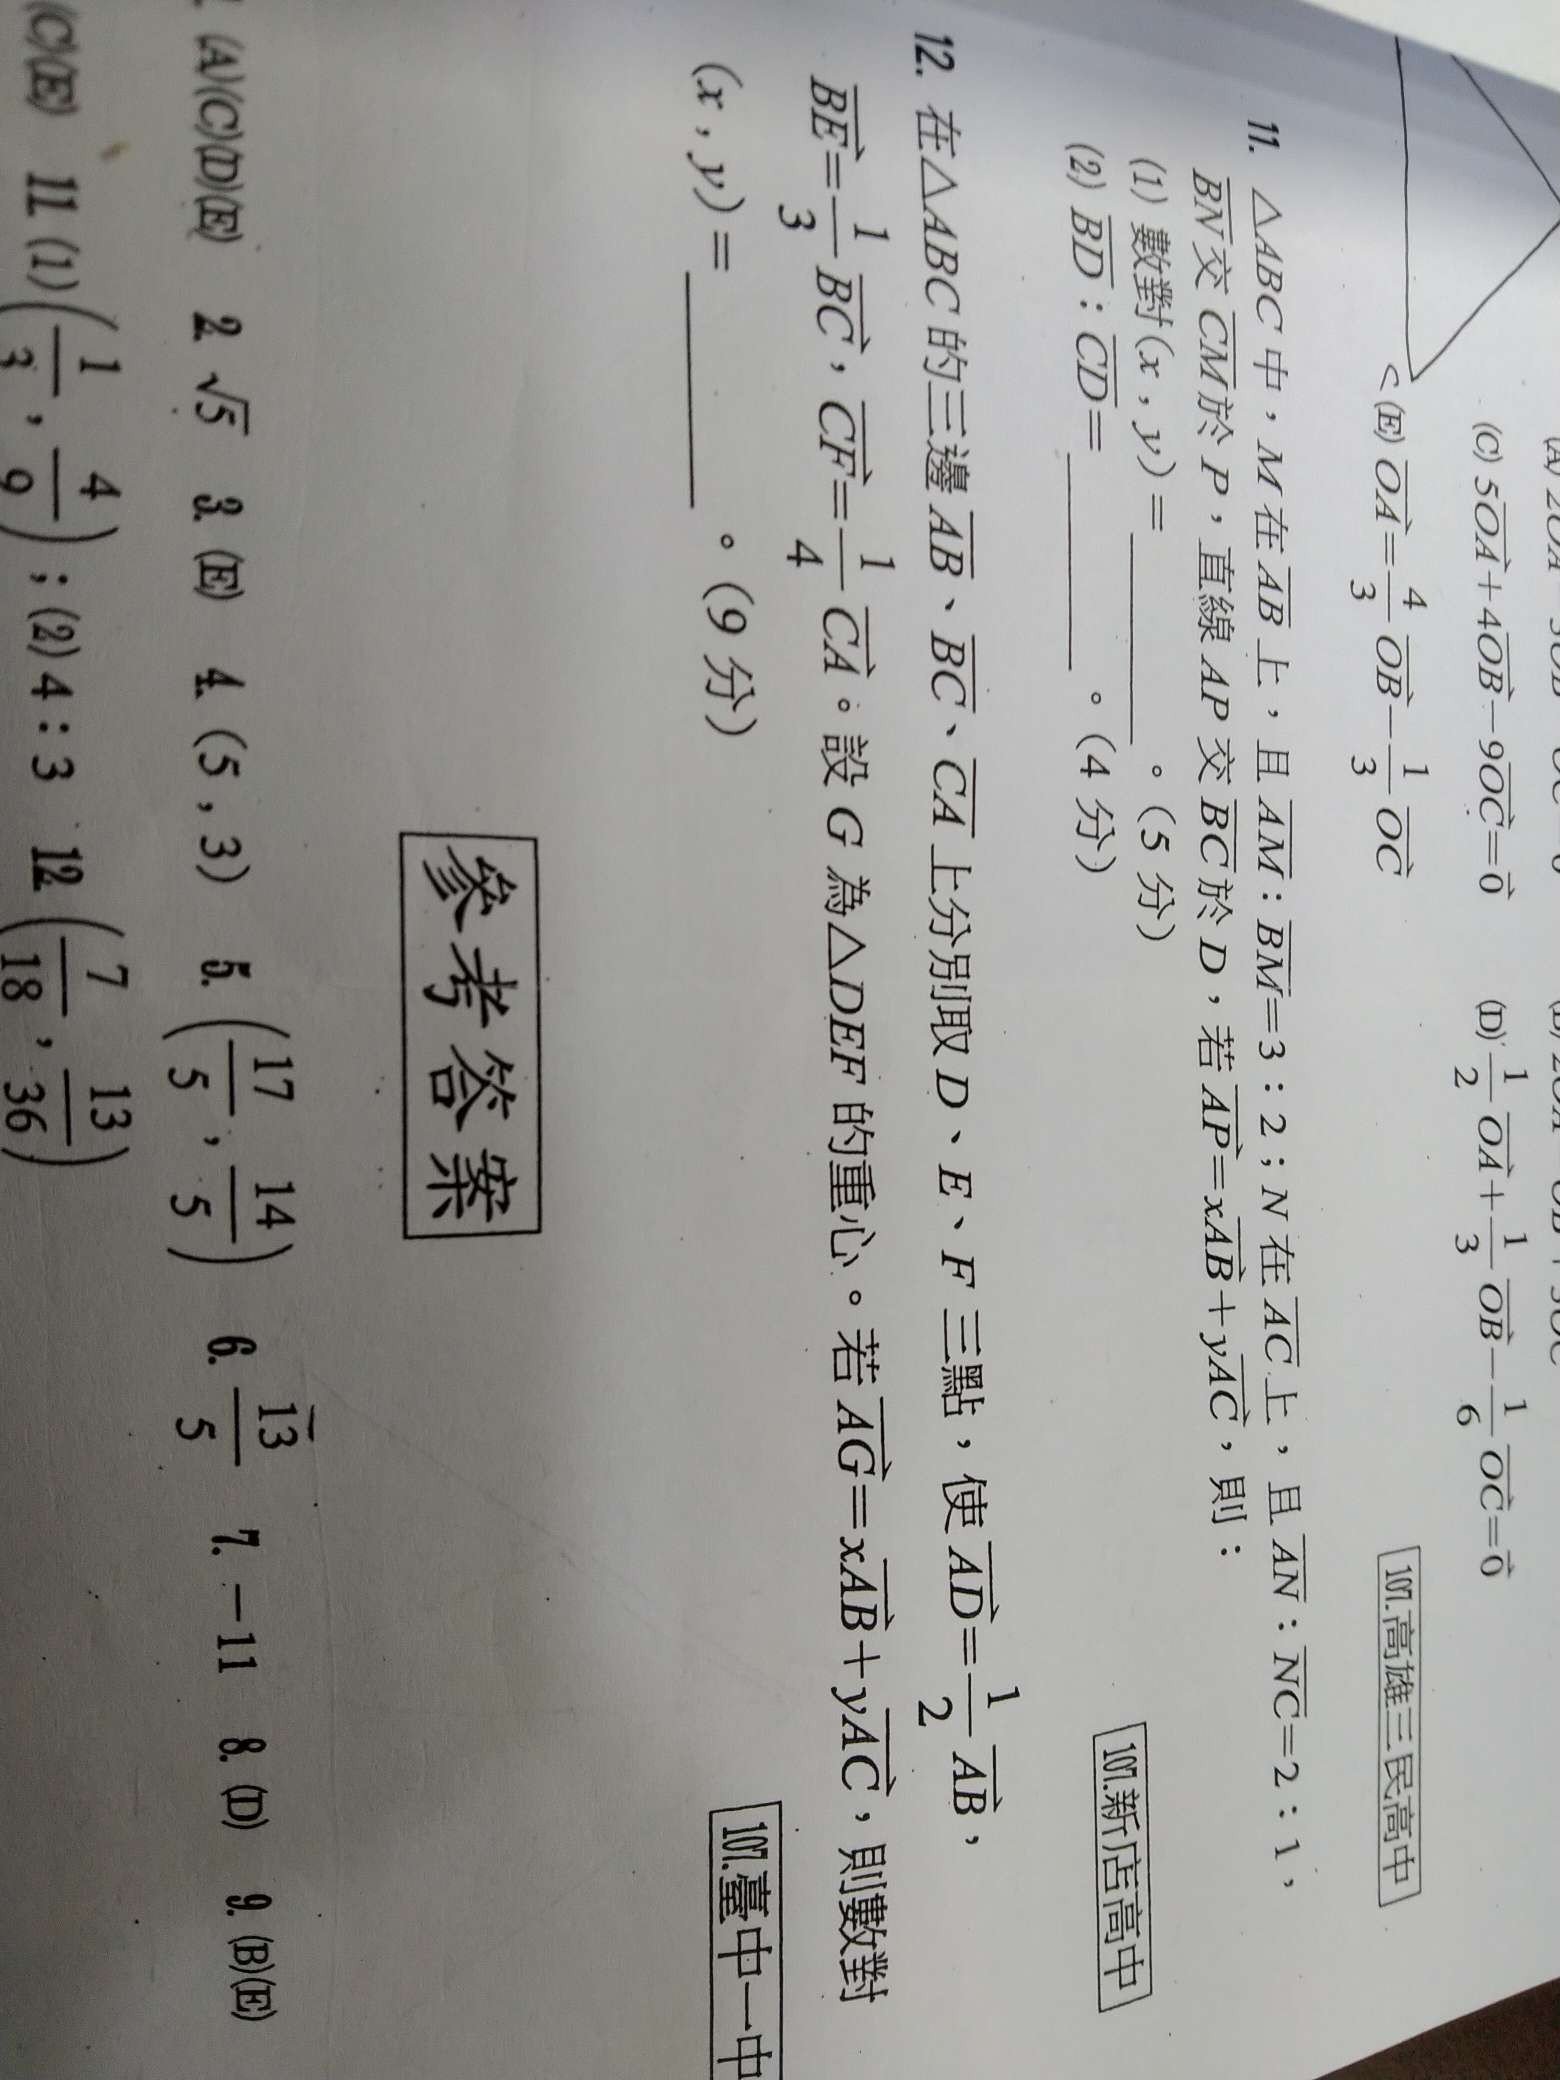 (C) 5OA+4OB−9OC=0 (D) 1/2 OA+1/3 OB−1/6 OC=0
(E) OA=4/3 OB−1/3 OC
107.高雄三民高中
11. △ABC 中，M 在 AB 上，且 AM：BM=3：2；N 在 AC 上，且 AN：NC=2：1，
BN 交 CM 於 P，直線 AP 交 BC 於 D，若 AP=xAB+yAC，則：
(1) 數對(x，y)=________。(5 分)
(2) BD：CD=________。(4 分)
107.新店高中
12. 在△ABC 的三邊 AB、BC、CA 上分別取 D、E、F 三點，使 AD=1/2 AB，
BE=1/3 BC，CF=1/4 CA。設 G 為△DEF 的重心。若 AG=xAB+yAC，則數對
(x，y)=________。(9 分)
107.臺中一中
參考答案
(A)(C)(D)(E) 2. √5 3. (E) 4. (5，3) 5. (17/5，14/5) 6. 13/5 7. −11 8. (D) 9. (B)(E)
(C)(E) 11. (1)(1/3，4/9)；(2) 4：3 12. (7/18，13/36)